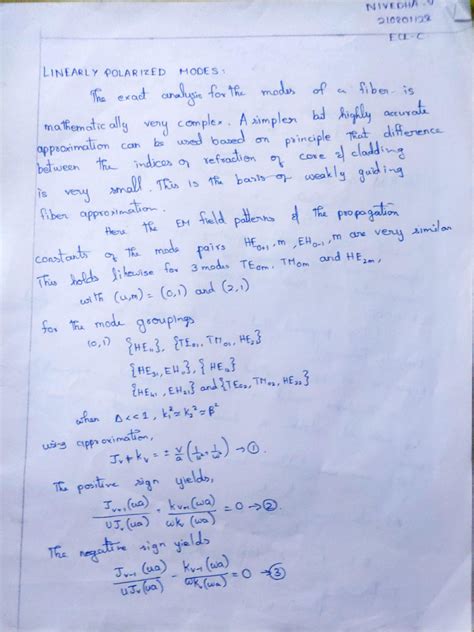 NIVEDHA.V
210801128
ECE-C
LINEARLY POLARIZED MODES:
The exact analysis for the modes of a fiber is
mathematically very complex. A simpler but highly accurate
approximation can be used based on principle that difference
between the indices of refraction of core & cladding
is very small. This is the basis of weakly guiding
fiber approximation.
Here the EM field patterns & the propagation
constants of the mode pairs HEυ+1,m, EHυ-1,m are very similar
This holds likewise for 3 modes TE0m, TM0m and HE2m,
with (υ,m) = (0,1) and (2,1)
for the mode groupings
(0,1) {HE11}, {TE01, TM01, HE21}
{HE31, EH11}, {HE12}
{HE41, EH21} and {TE02, TM02, HE22}
when Δ<<1, k1² ≃ k2² ≃ β²
using approximation,
Jν + kν = ± ν/a (1/u² + 1/w²) → ①.
The positive sign yields,
Jν+1(ua)/uJν(ua) + kν+1(wa)/wkν(wa) = 0 → ②.
The negative sign yields
Jν-1(ua)/uJν(ua) - kν-1(wa)/wkν(wa) = 0 → ③